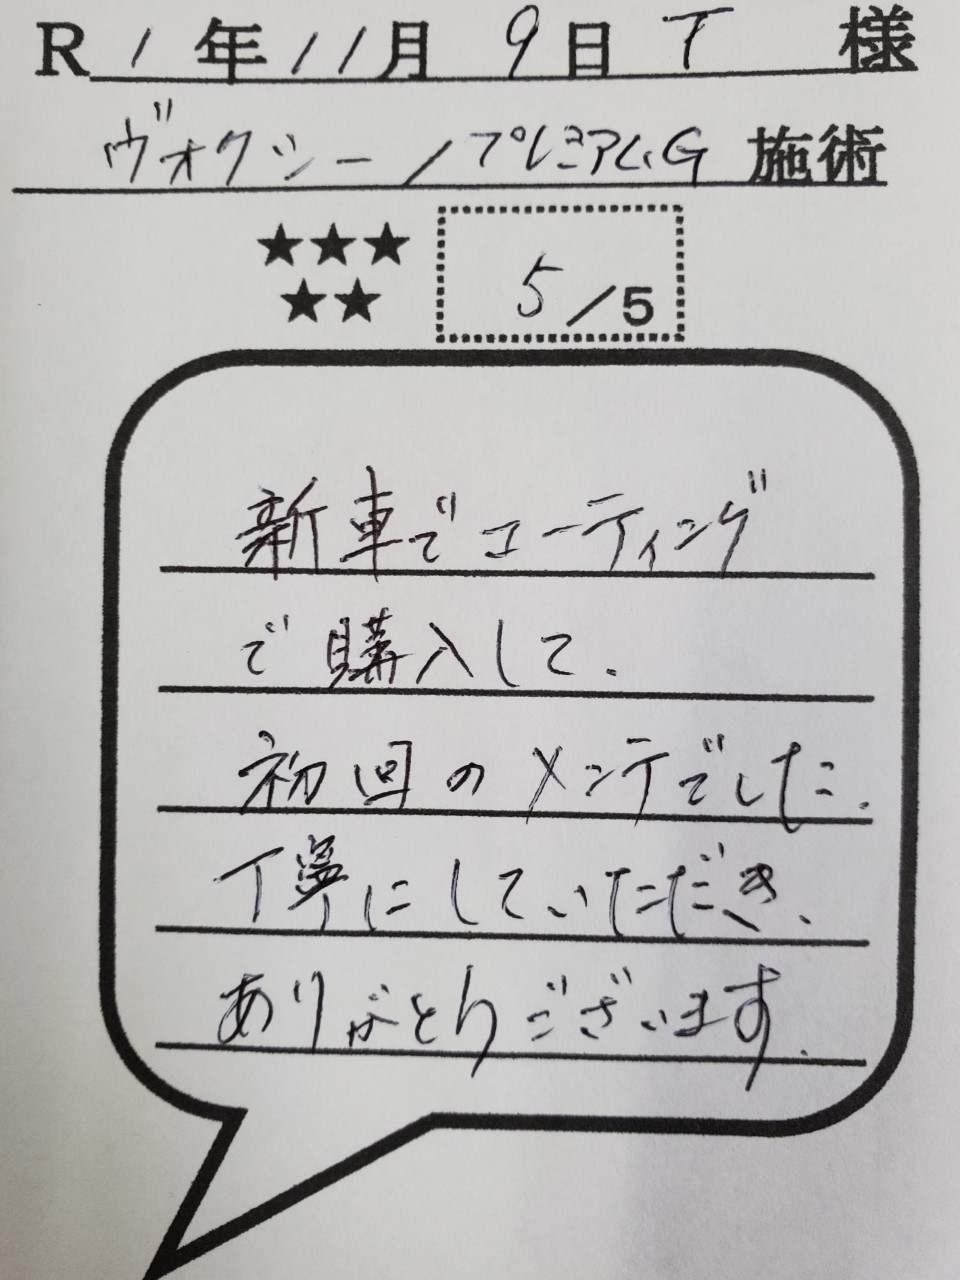 R1年11月9日 T 様
ヴォクシー/プレミアムG 施術
★★★
★★
5/5
新車でコーティング
で購入して.
初回のメンテでした.
丁寧にしていただき、
ありがとうございます.